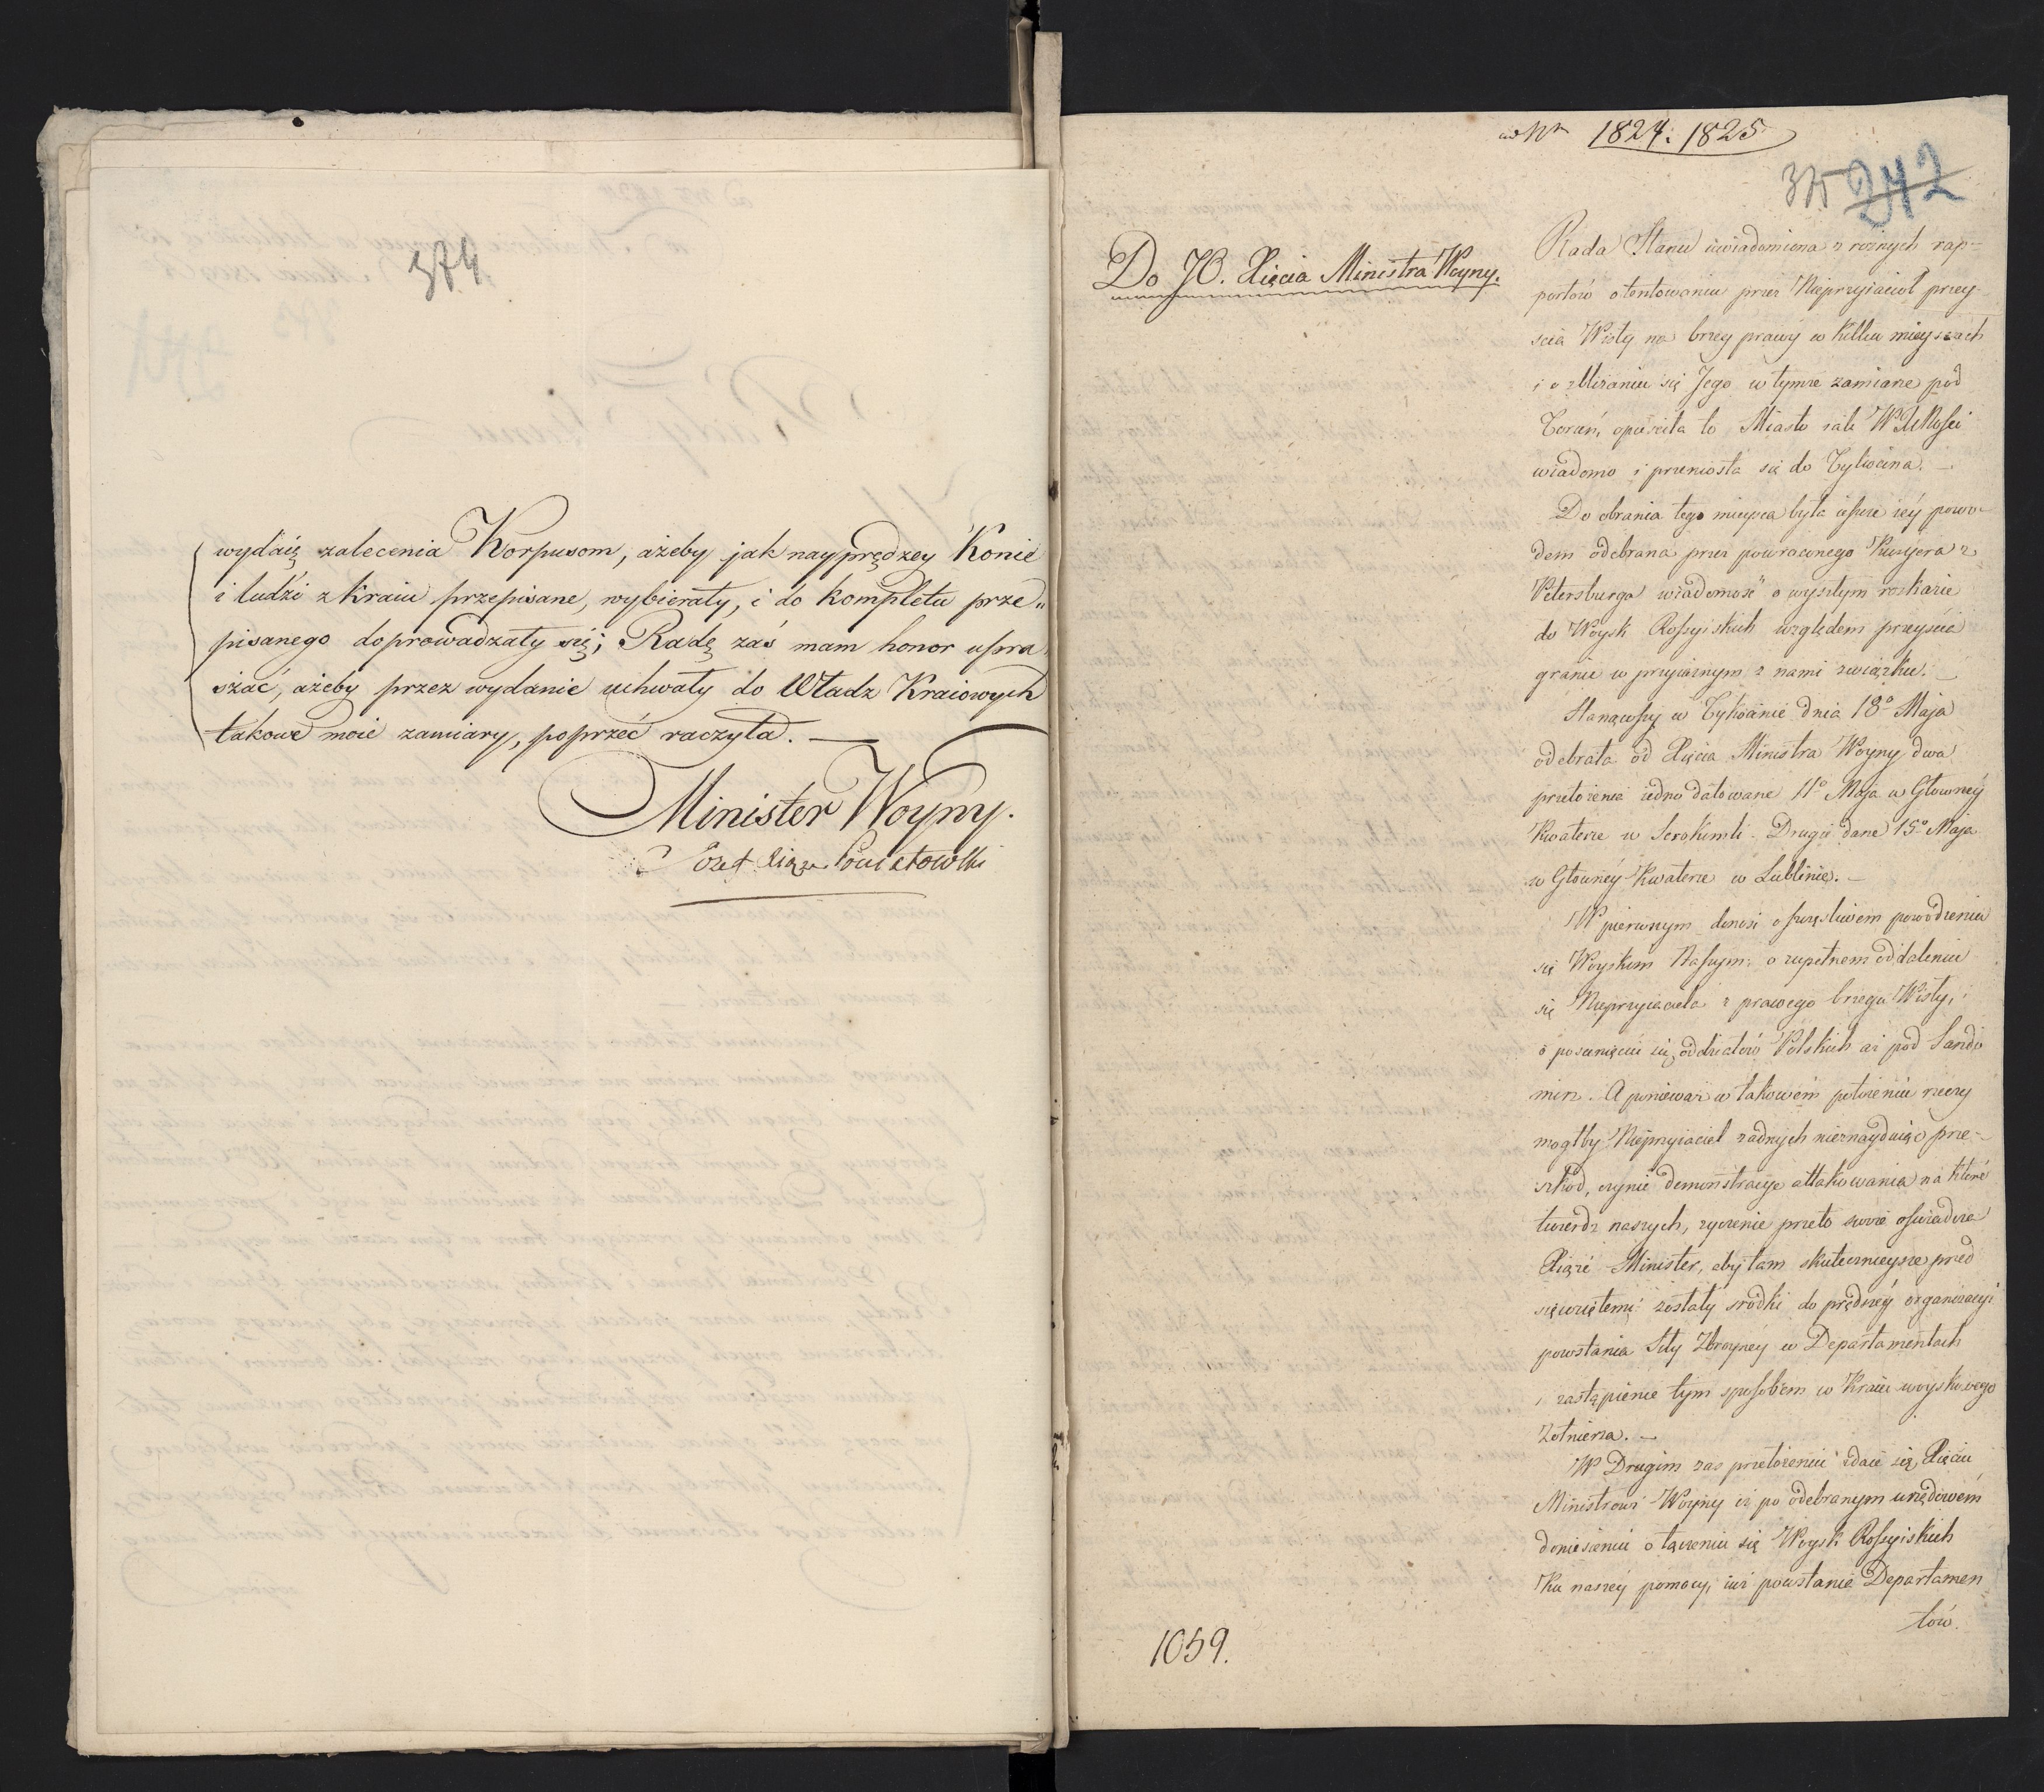 374
wydaię zalecenia Korpusom, ażeby jak nayprędzey Konie
i ludzi z kraiu przepisane, wybierały, i do kompletu prze„
pisanego doprowadzały się; Radę zaś mam honor upra„
szać, ażeby przez wydanie uchwały do Władz Kraiowych
takowe moie zamiary, poprzeć raczyła. —
Minister Woyny.
Józef Xiąże Poniatowski
ad Nr 1824. 1825
375 242
Do JO. Xięcia Ministra Woyny.
Rada Stanu uwiadomiona z rożnych rap=
portów o tentowaniu przez Nieprzyiaciół przey-
scia Wisły na brzeg prawy w kilku mieyscach
i o zbliżaniu się Jego w tymże zamiarze pod
Toruń, opuściła to Miasto iak WXMości
wiadomo i przeniosła się do Tykocina. —
Do obrania tego mieysca była ieszcze iéy powo-
dem odebrana przez powracaiącego Kuryera z
Petersburga wiadomość o wyszłym roskazie
do Woysk Rossyiskich względem przeyścia
granic w przyiaznym z nami związku. —
Stanąwszy w Tykocinie dnia 18o Maja
odebrała od Xięcia Ministra Woyny dwa
przełożenia iedno datowane 11o Maja w Głownéy
Kwaterze w Serokomli. Drugie dane 15o Maja
w Głównéy Kwaterze w Lublinie. —
W pierwszym donosi o szczęśliwem powodzeniu
się Woyskom Naszym: o zupełnem oddaleniu
się Nieprzyiaciela z prawego brzegu Wisły, i
o posunięciu się oddziałów Polskich aż pod Sando
mirz. A ponieważ w takowém położeniu rzeczy
mogłby Nieprzyiaciel żadnych nieznayduiąc prze-
szkod, czynić demonstracye attakowania na które
twierdz naszych, życzenie przeto swoie oświadcza
Xiąże Minister, aby tam skutecznieysze przed
sięwziętemi zostały srodki do prędszéy organizacyi
powstania Siły Zbroynéy w Departamentach
i zastąpienie tym sposobem w Kraiu woyskowego
Żołnierza. —
W Drugim zas przełożeniu zdaie się Xięciu
Ministrowi Woyny iż po odebranym urzędowém
doniesieniu o łączeniu się Woysk Rossyiskich
Ku naszéy pomocy, iuż powstanie Departamen
tow.
1059.